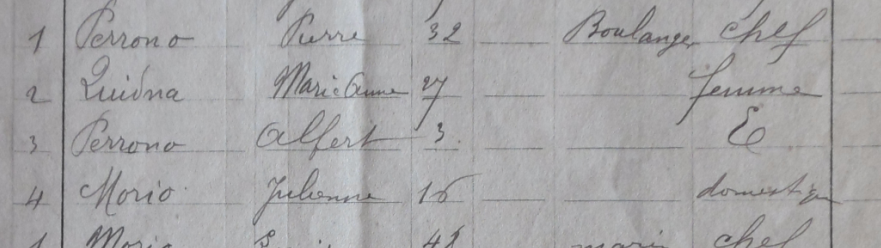 1 Perrono Pierre 32 Boulanger chef
2 Quidna Marie Anne 27 femme
3 Perrono Alfert 3 E
4 Morio Julienne 16 domestiq
1 Morio 42 marin chef